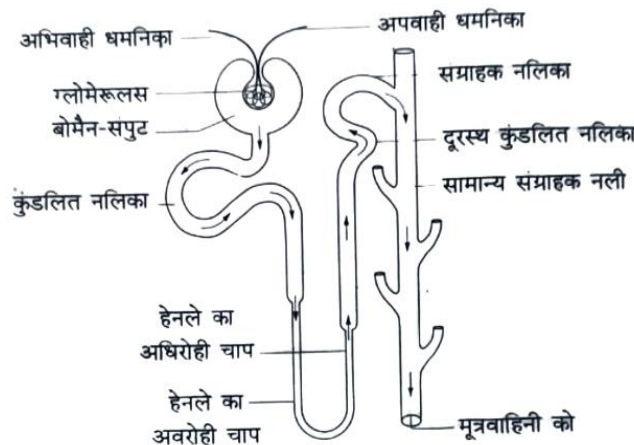 अभिवाही धमनिका
अपवाही धमनिका
ग्लोमेरूलस
बोमैन-संपुट
संग्राहक नलिका
दूरस्थ कुंडलित नलिका
सामान्य संग्राहक नली
कुंडलित नलिका
हेनले का
अधिरोही चाप
हेनले का
अवरोही चाप
मूत्रवाहिनी को